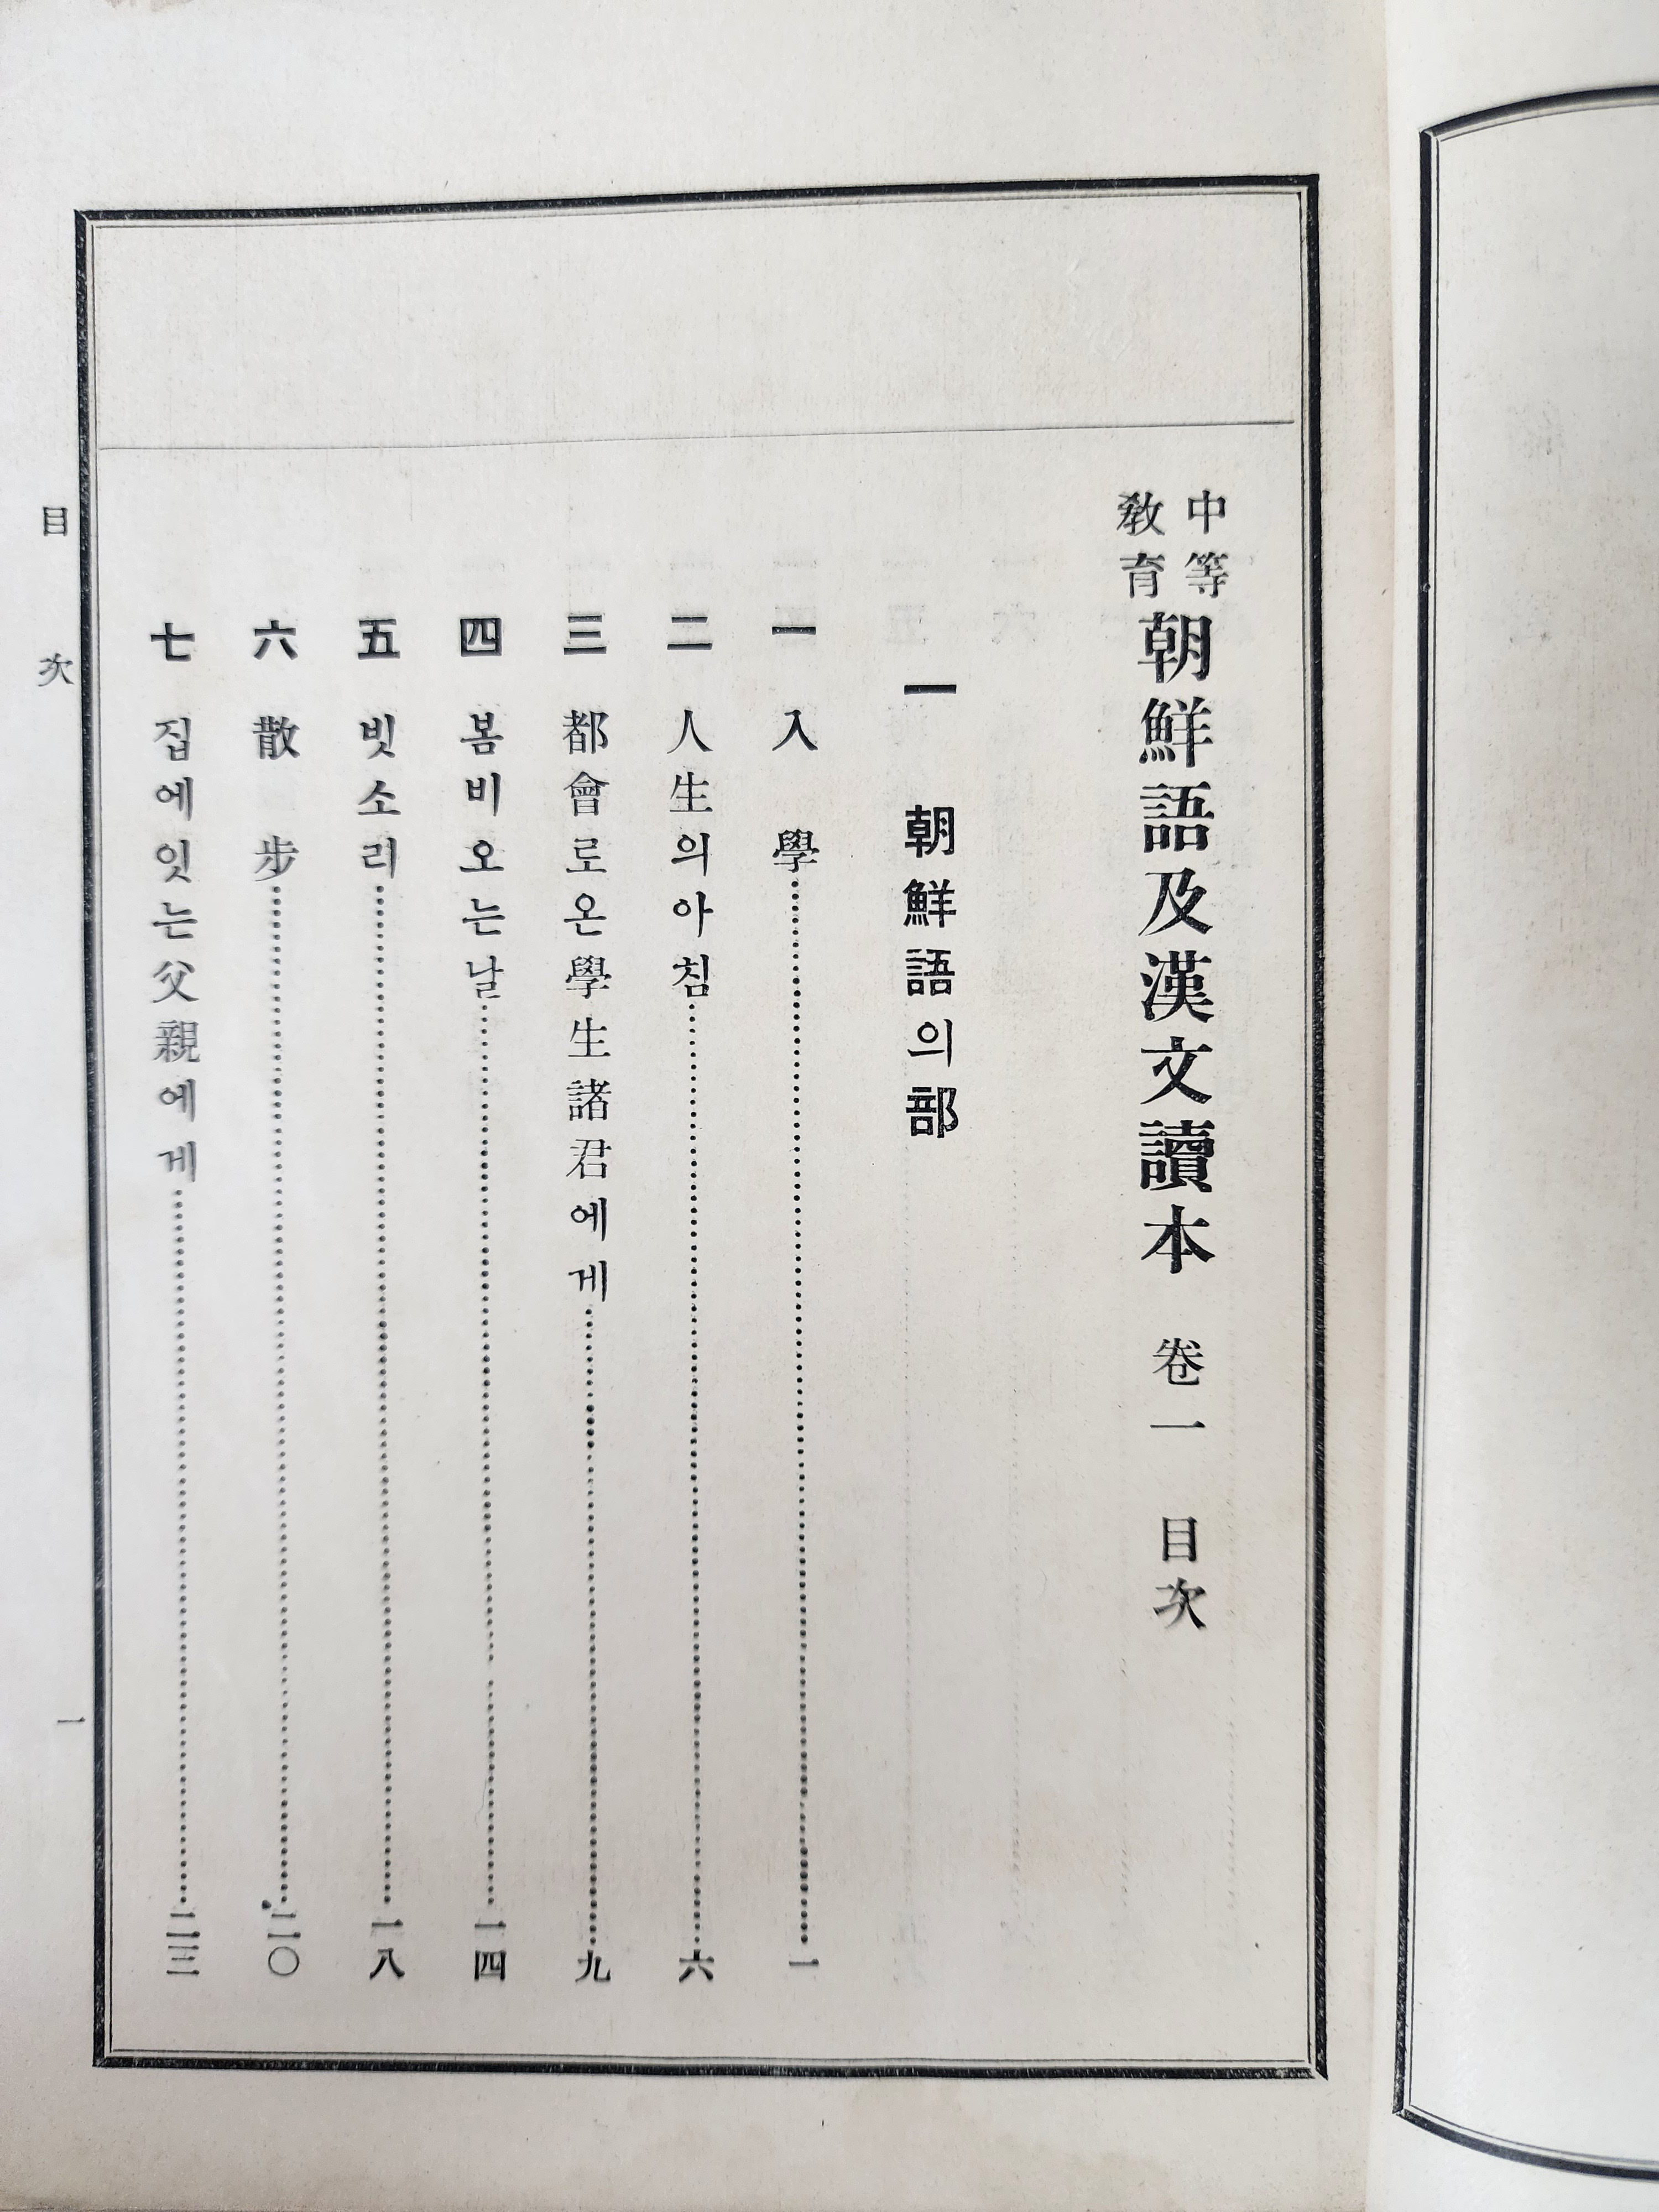 中等教育朝鮮語及漢文讀本 卷一 目次
一 朝鮮語의部
一 入 學……一
二 人生의아침……六
三 都會로온學生諸君에게……九
四 봄비오는날……一四
五 빗소리……一八
六 散 步……二〇
七 집에잇는父親에게……二三
目次 一